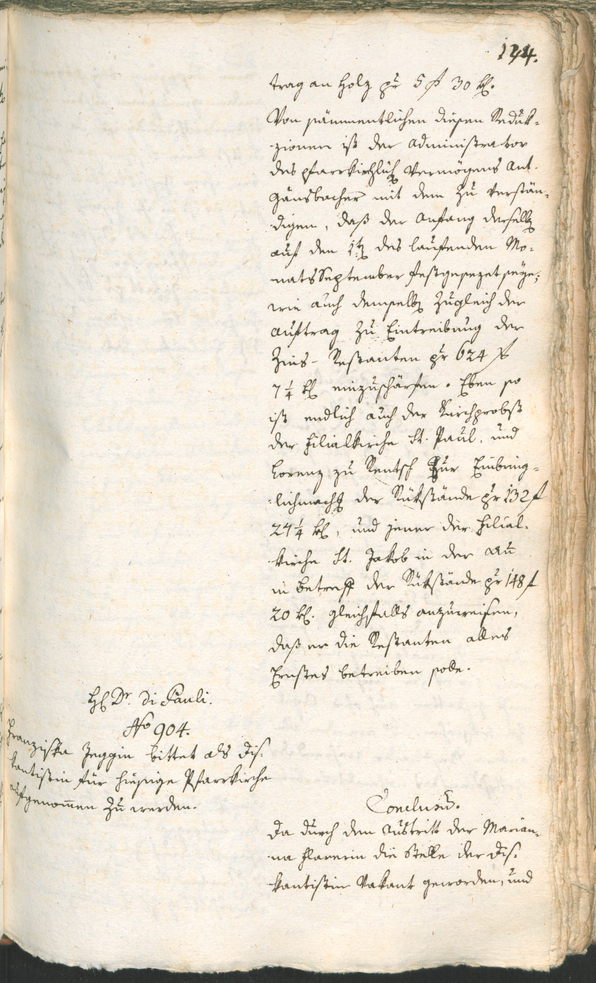 144.
trag an Holz pr 5 f 30 kr.
Von sämmentlichen diesen Reduk-
zionen ist der Administrator
des pfarrkirchlich Vermögens Ant.
Gänsbacher mit dem zu verstän-
digen, daß der Anfang derselb
auf den 1t des laufenden Mo-
nats September festgesezet seye;
wie auch demselb zugleich der
Auftrag zu Eintreibung der
Zins-Restanten pr 624 f
7¼ kr einzuschärfen. Eben so
ist endlich auch der Kirchprobst
der Filialkirche St. Paul. und
Lorenz zu Rentsch zur Einbring-
lichmachg der Rükstände pr 132 f
24¼ kr, und jener der Filial-
kirche St. Jakob in der Au
in betreff der Rükstände pr 148 f
20 kr. gleichfalls anzuweisen,
daß er die Restanten alles
Ernstes betreiben solle.
H Dr. di Pauli.
No 904.
Franziska Jeggin bittet als Dis-
kantistin für hiesige Pfarrkirche
aufgenommen zu werden.
Conclusum.
Da durch den Austritt der Marian-
na die Stelle der Dis-
kantistin Vakant geworden, und